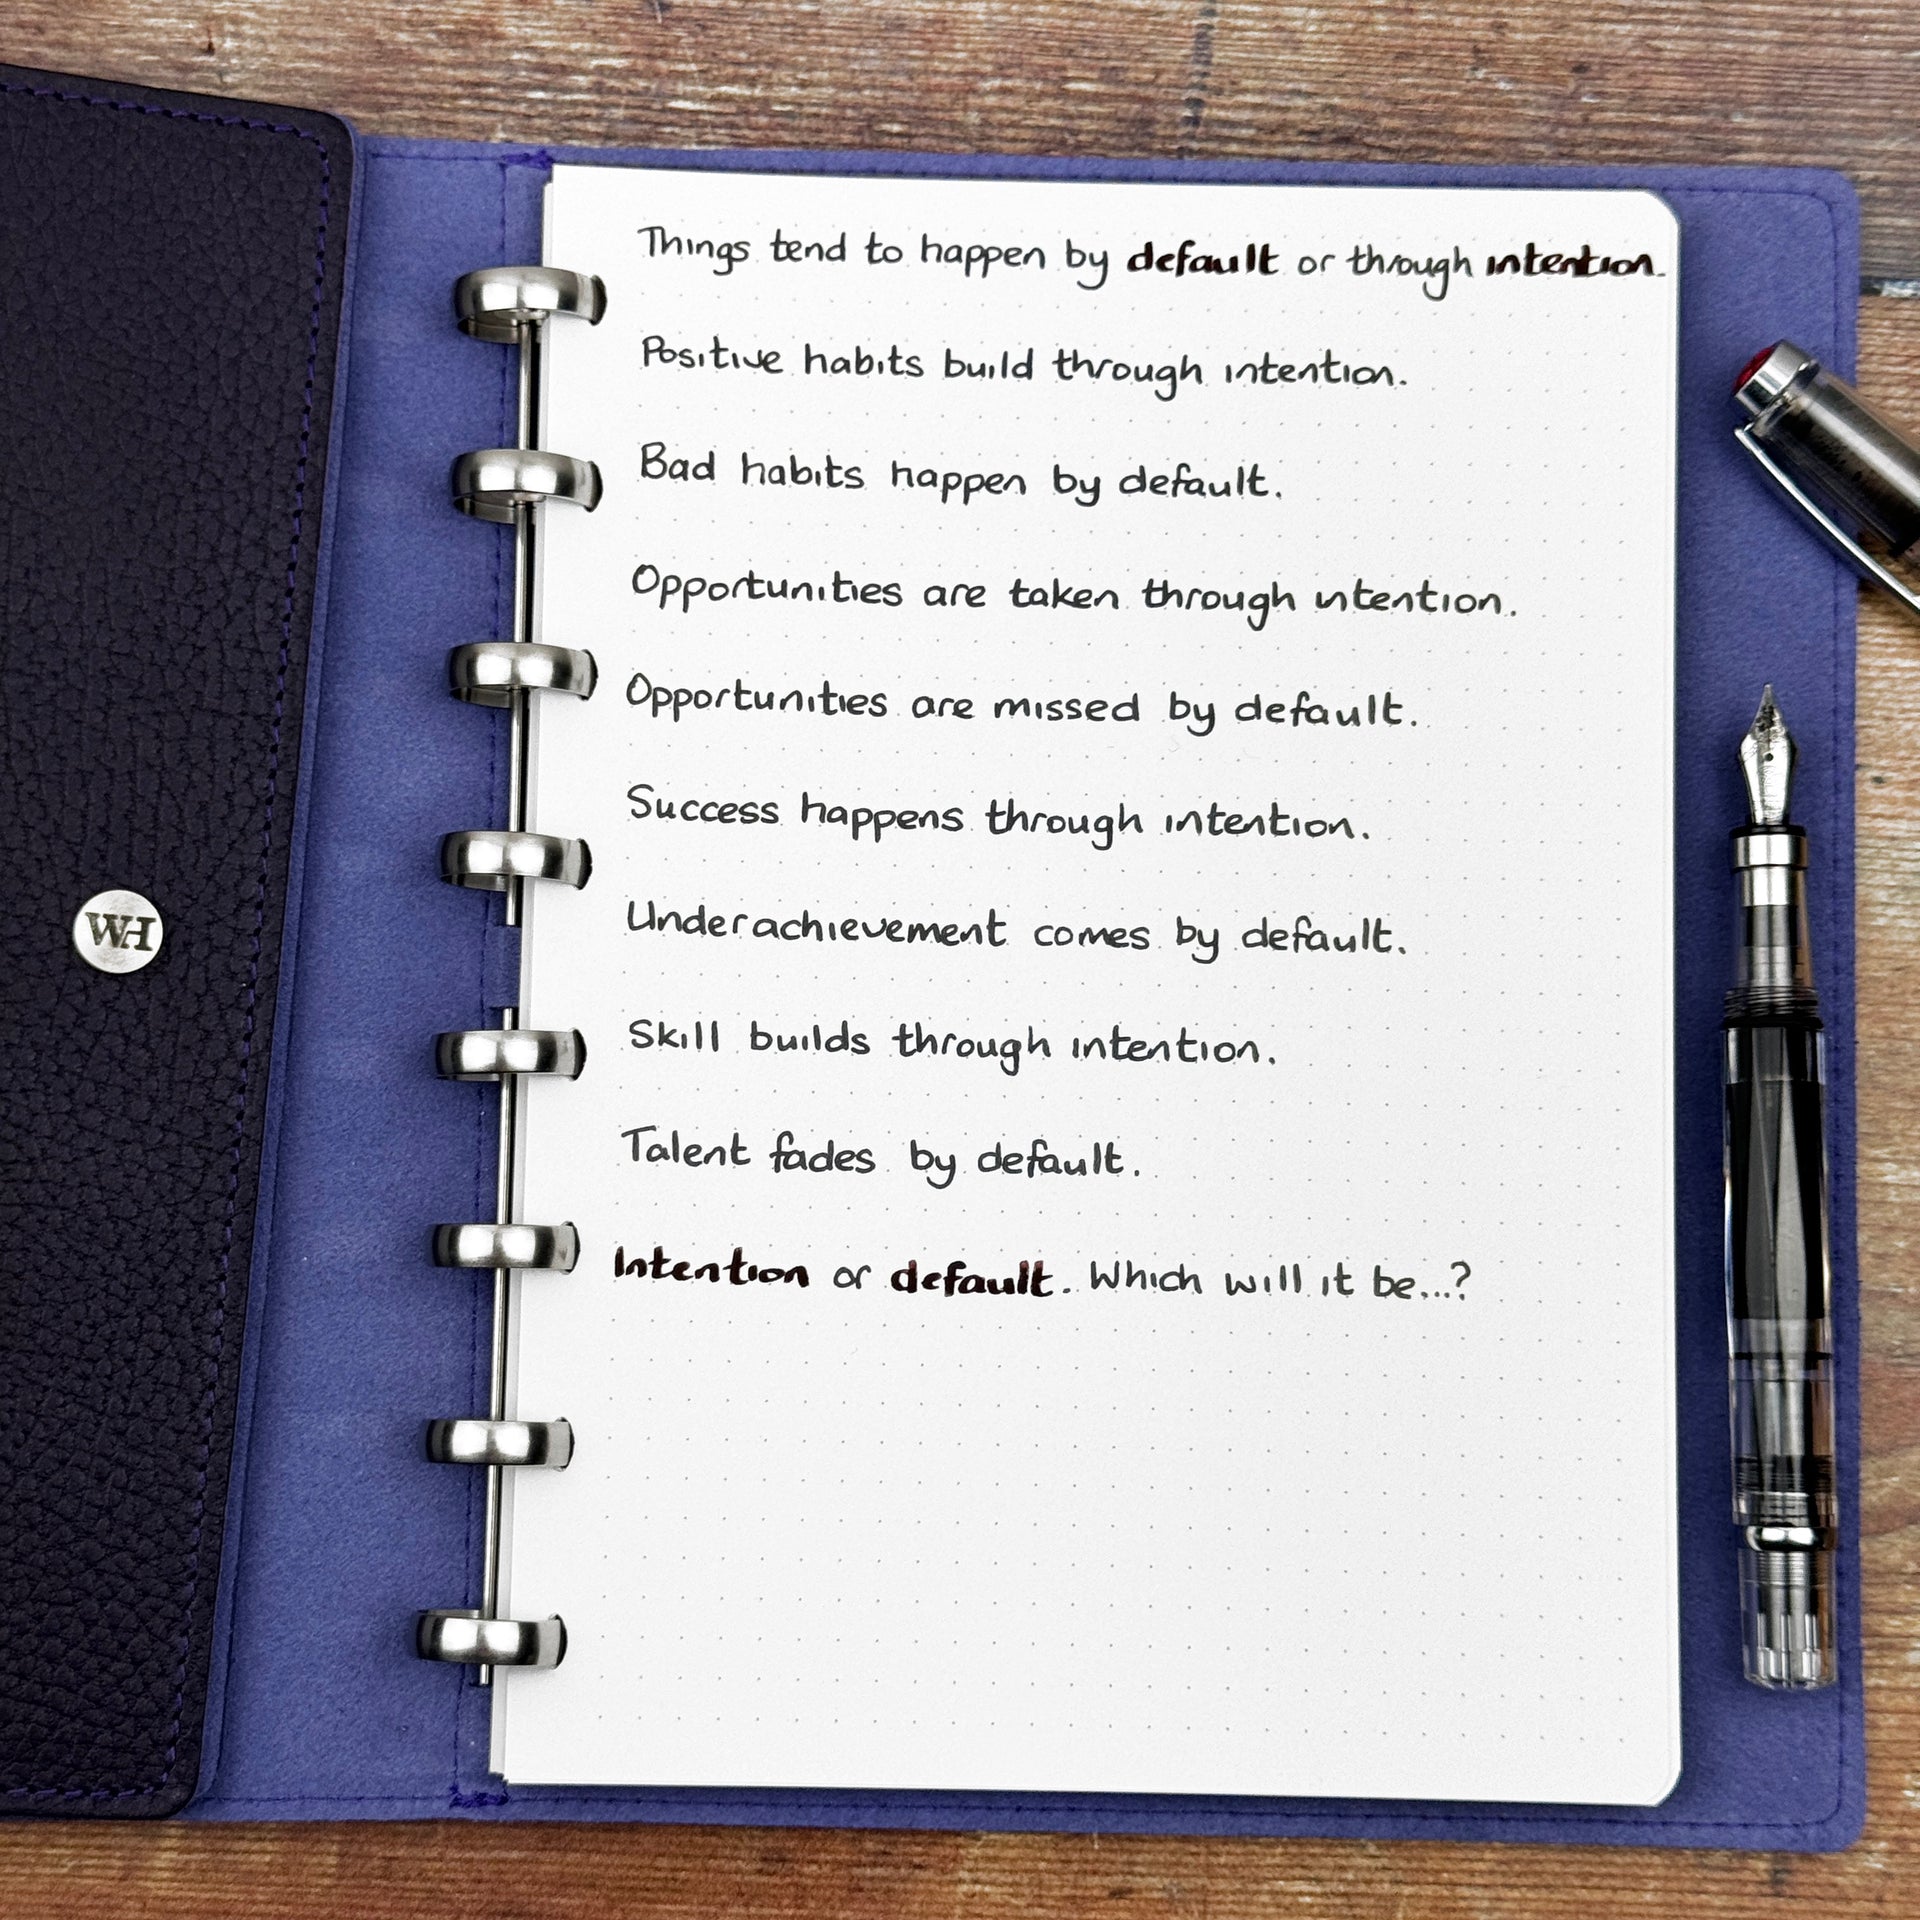 Things tend to happen by default or through intention.
Positive habits build through intention.
Bad habits happen by default.
Opportunities are taken through intention.
Opportunities are missed by default.
Success happens through intention.
Underachievement comes by default.
Skill builds through intention.
Talent fades by default.
Intention or default. Which will it be...?
WH